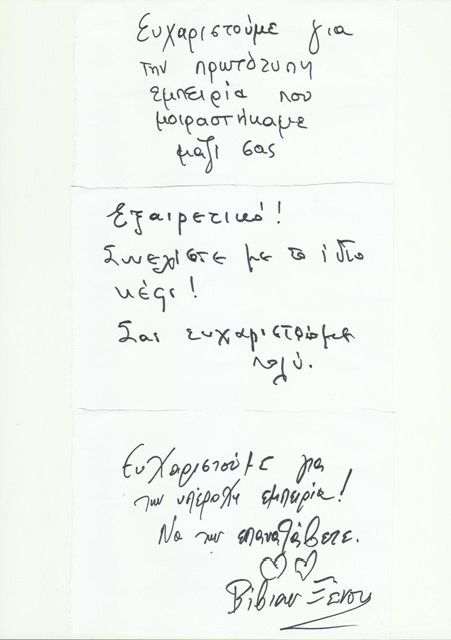 Ευχαριστούμε για
την πρωτότυπη
εμπειρία που
μοιραστήκαμε
μάζι σας
Εξαιρετικό!
Συνεχίστε με το ίδιο
κέφι!
Σας ευχαριστούμε
πολύ.
Ευχαριστούμε για
την υπέροχη εμπειρία!
Να την επαναλάβετε.
Βίβιαν Ξένου